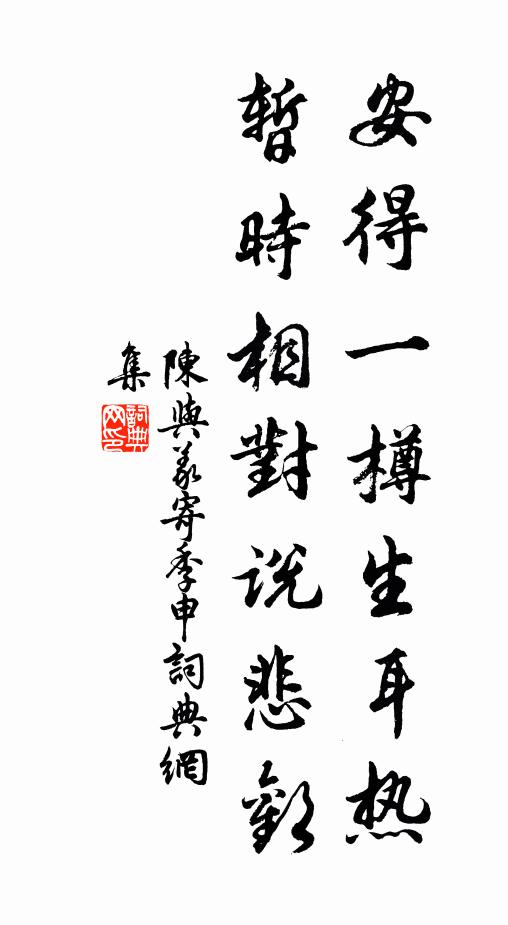 安得一樽生耳热
暫時相對説悲歡
陳與義寄季申詞典網
集
詞典網印